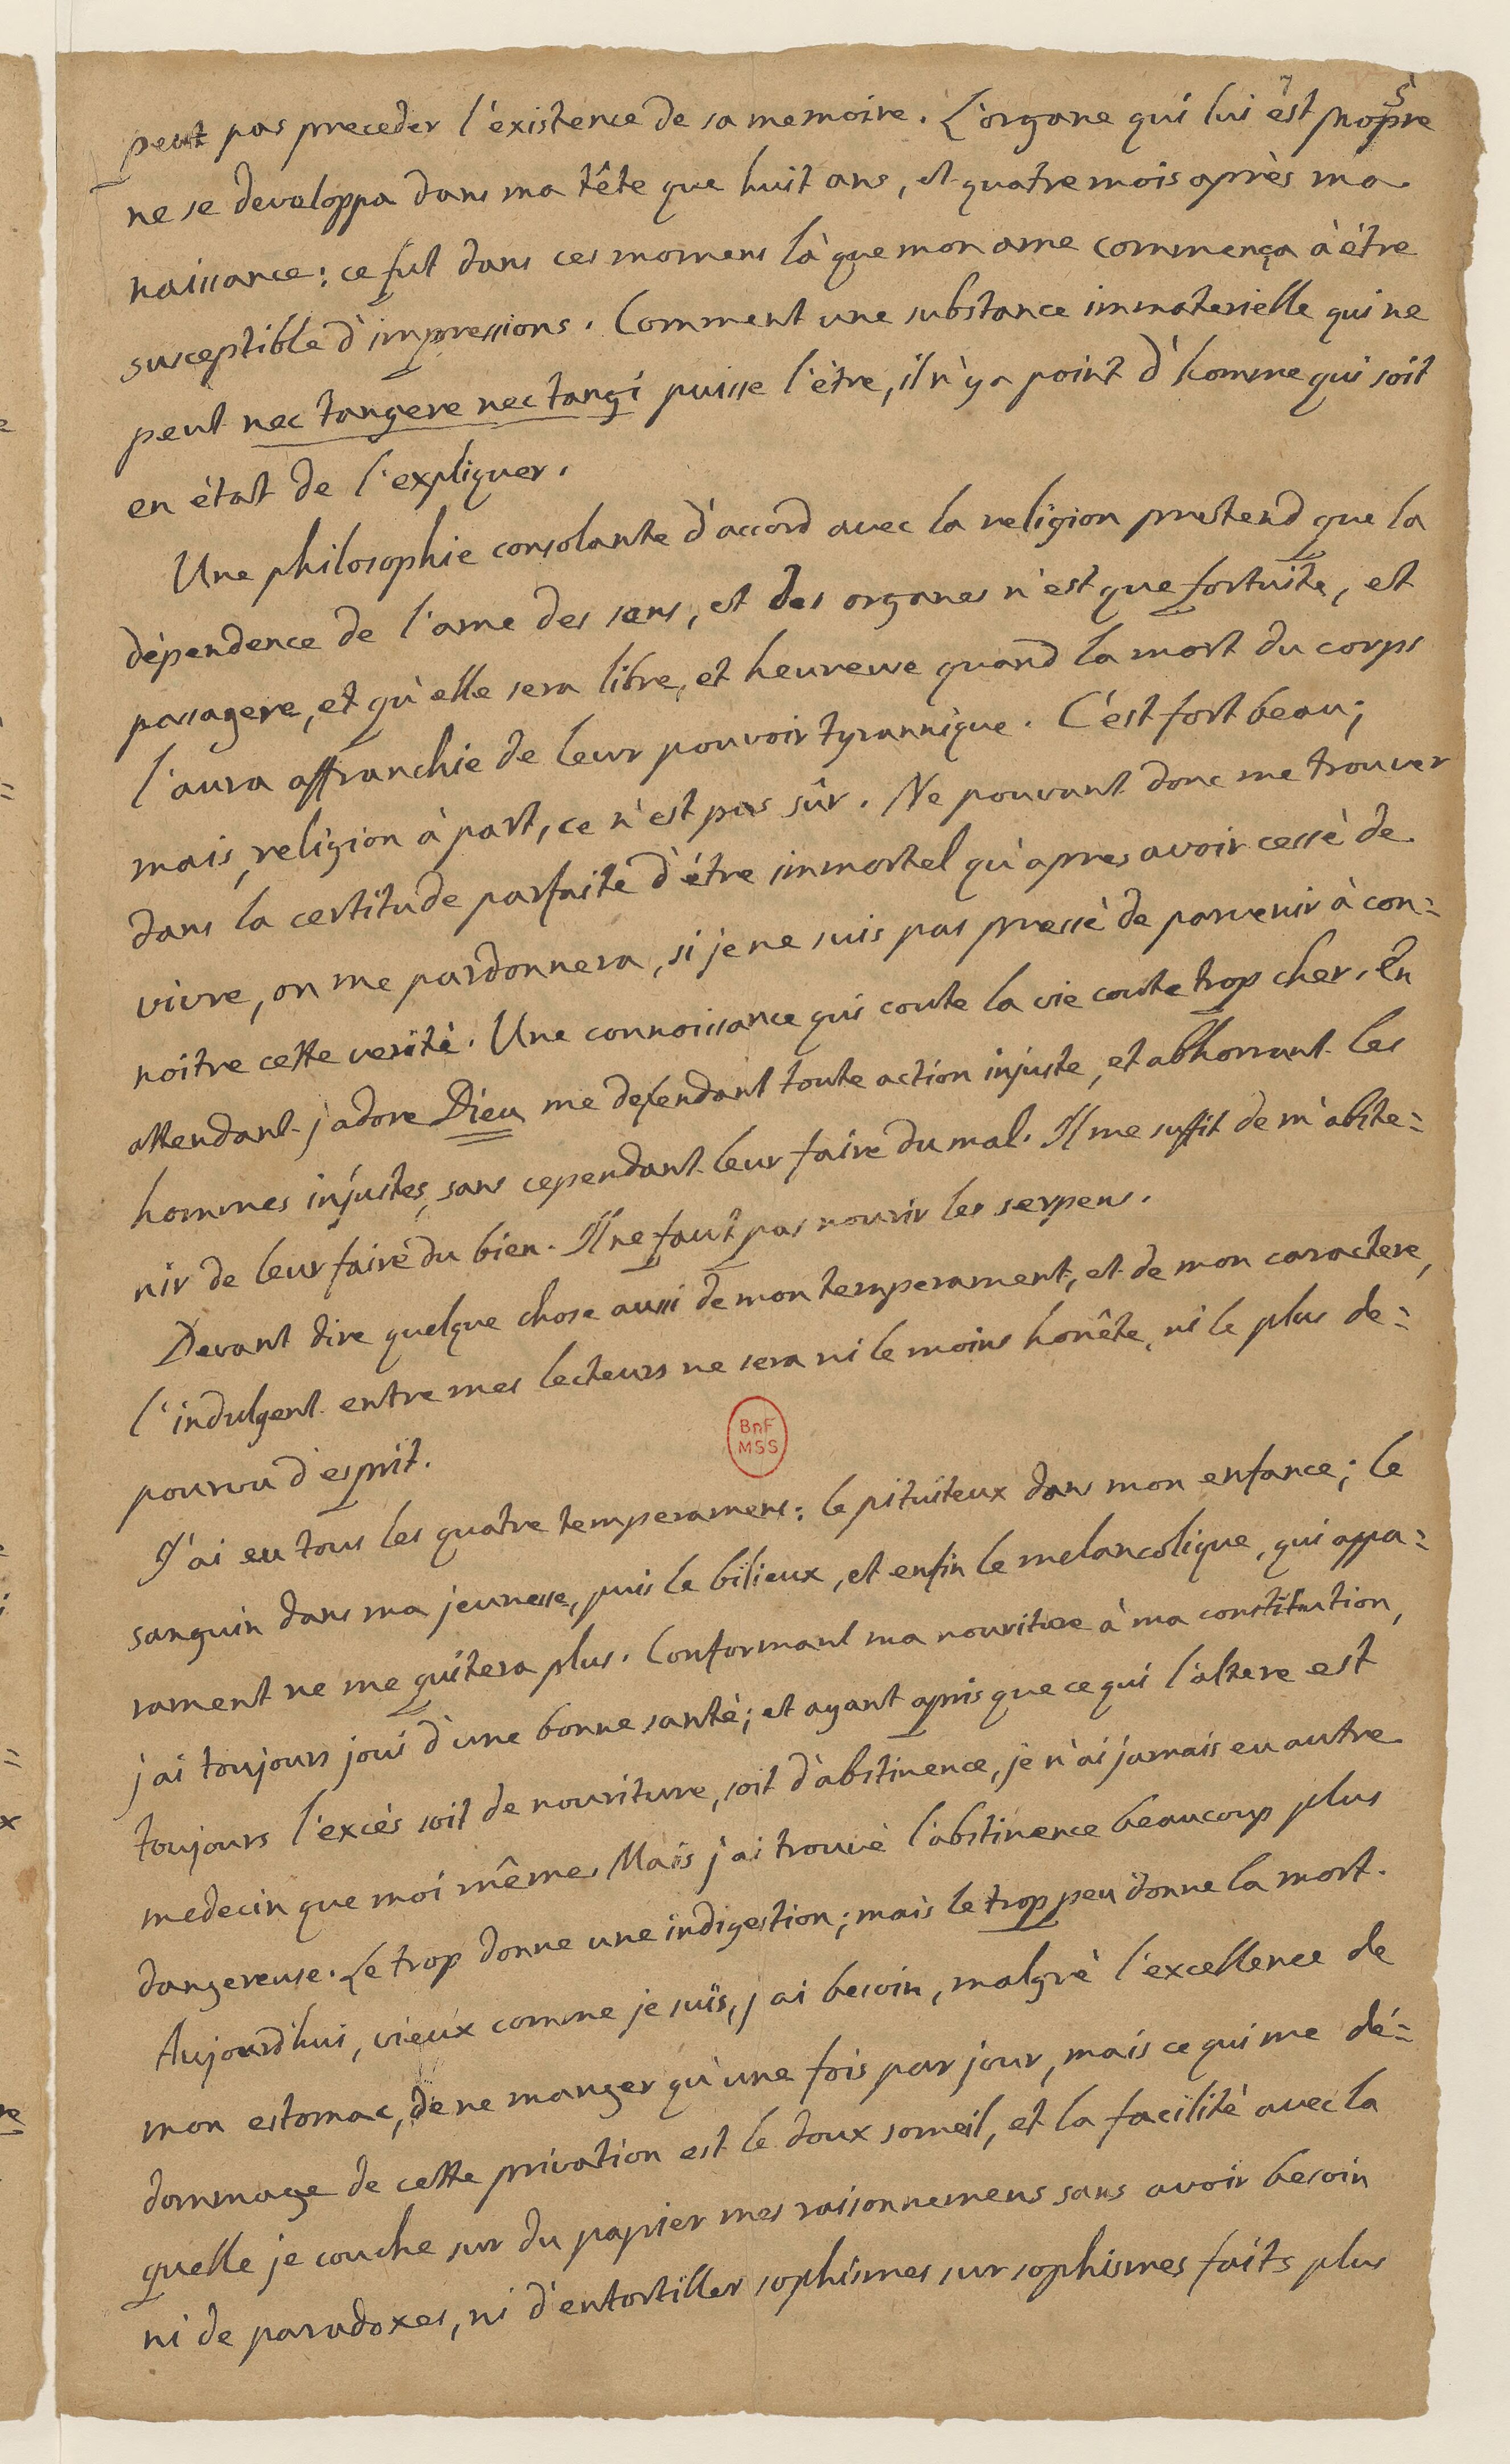 5
peut pas preceder l'existence de sa memoire. L'organe qui lui est propre
ne se developpa dans ma tête que huit ans, et quatre mois après ma
naissance: ce fut dans ces momens là que mon ame commença à être
susceptible d'impressions. Comment une substance immaterielle qui ne
peut nec tangere nec tangi puisse l'être, il n'y a point d'homme qui soit
en état de l'expliquer.
Une philosophie consolante d'accord avec la religion pretend que la
dépendence de l'ame des sens, et des organes n'est que fortuite, et
passagere, et qu'elle sera libre, et heureuse quand la mort du corps
l'aura affranchie de leur pouvoir tyrannique. C'est fort beau;
mais, religion à part, ce n'est pas sûr. Ne pouvant donc me trouver
dans la certitude parfaite d'être immortel qu'apres avoir cessè de
vivre, on me pardonnera, si je ne suis pas pressè de parvenir à con=
noitre cette verité. Une connoissance qui coute la vie coute trop cher. En
attendant j'adore Dieu me defendant toute action injuste, et abhorrant les
hommes injustes, sans cependant leur faire du mal. Il me suffit de m'abste=
nir de leur faire du bien. Il ne faut pas nourir les serpens.
Devant dire quelque chose aussi de mon temperament, et de mon caractere,
l'indulgent entre mes lecteurs ne sera ni le moins honête, ni le plus de=
pourvu d'esprit.
BnF
MSS
J'ai eu tous les quatre temperamens: le pituiteux dans mon enfance; le
sanguin dans ma jeunesse, puis le bilieux, et enfin le melancolique, qui appa=
rament ne me quitera plus. Conformant ma nouriture à ma constitution,
j'ai toujours joui d'une bonne santè; et ayant apris que ce qui l'altere est
toujours l'excès soit de nouriture, soit d'abstinence, je n'ai jamais eu autre
medecin que moi même. Mais j'ai trouvè l'abstinence beaucoup plus
dangereuse. Le trop donne une indigestion; mais le trop peu donne la mort.
Aujourd'hui, vieux comme je suis, j'ai besoin, malgrè l'excellence de
mon estomac, de ne manger qu'une fois par jour, mais ce qui me dé=
dommage de cette privation est le doux someil, et la facilitè avec la
quelle je couche sur du papier mes raisonnemens sans avoir besoin
ni de paradoxes, ni d'entortiller sophismes sur sophismes faits plus